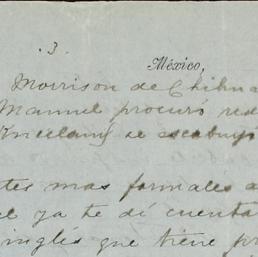 .3.
México,
Morrison de Chihua
Manuel procuró red
se escabuyó
tes mas formales a
el ya te dí cuenta
inglés que tiene pr